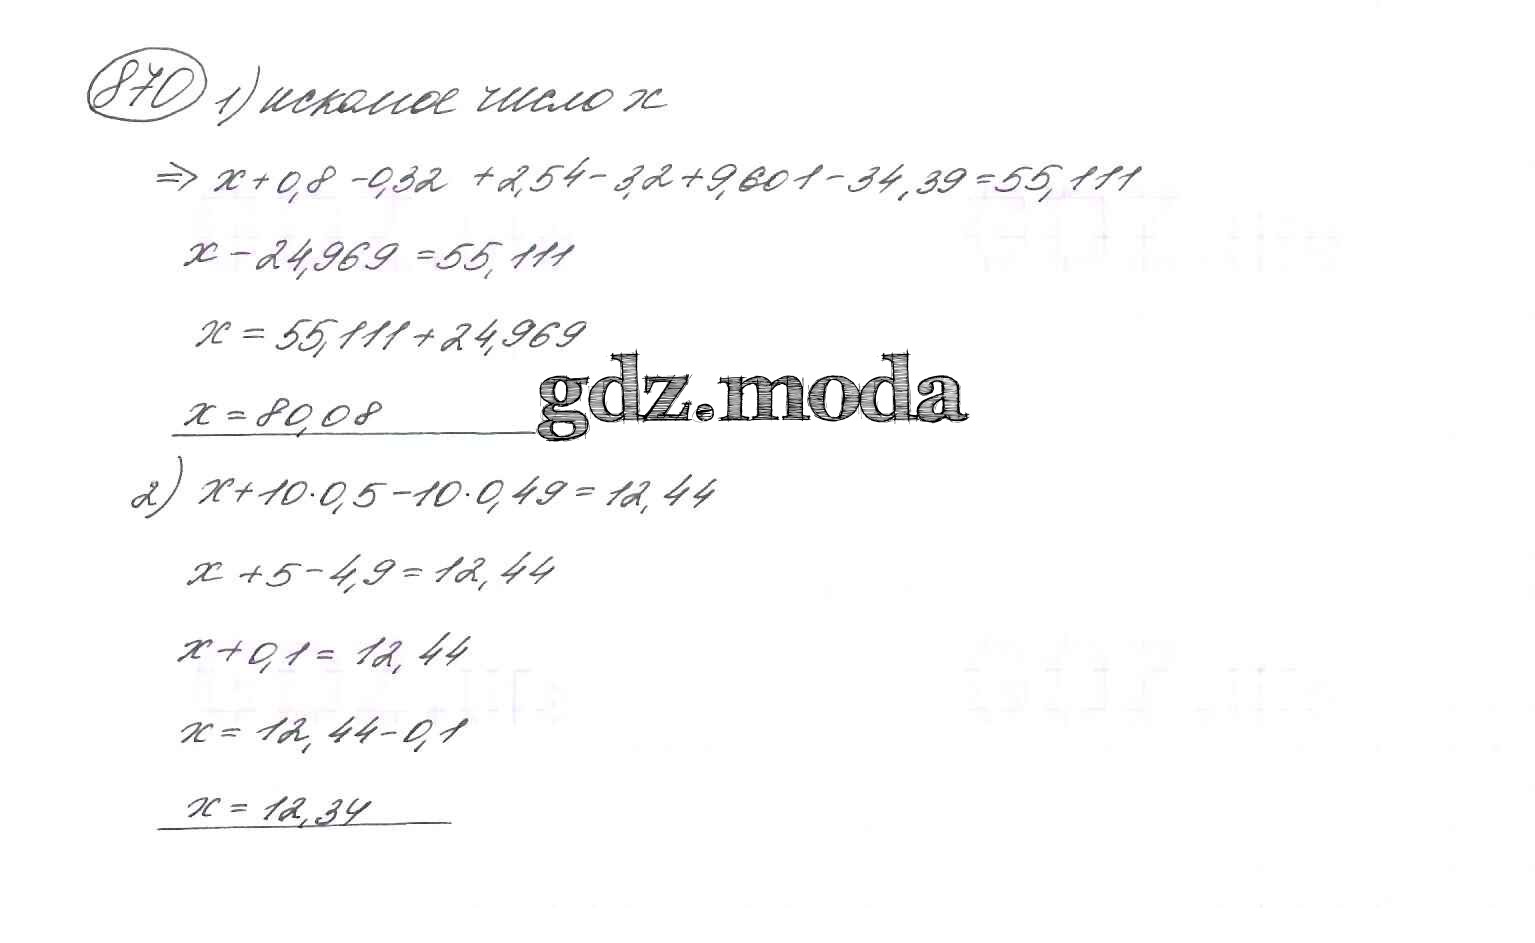 870 1) искомое число x
⇒ x + 0,8 - 0,32 + 2,54 - 3,2 + 9,601 - 34,39 = 55,111
x - 24,969 = 55,111
x = 55,111 + 24,969
gdz.moda
x = 80,08
2) x + 10·0,5 - 10·0,49 = 12,44
x + 5 - 4,9 = 12,44
x + 0,1 = 12,44
x = 12,44 - 0,1
x = 12,34